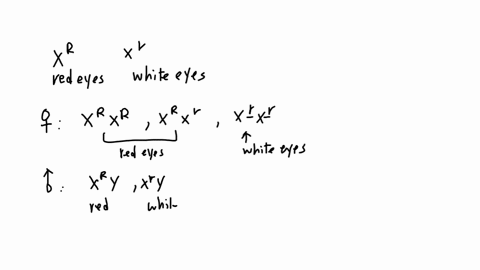 X^R X^r
red eyes white eyes
♀: X^R X^R , X^R X^r , X^r X^r
red eyes ↑ white eyes
♂: X^R Y , X^r Y
red whit